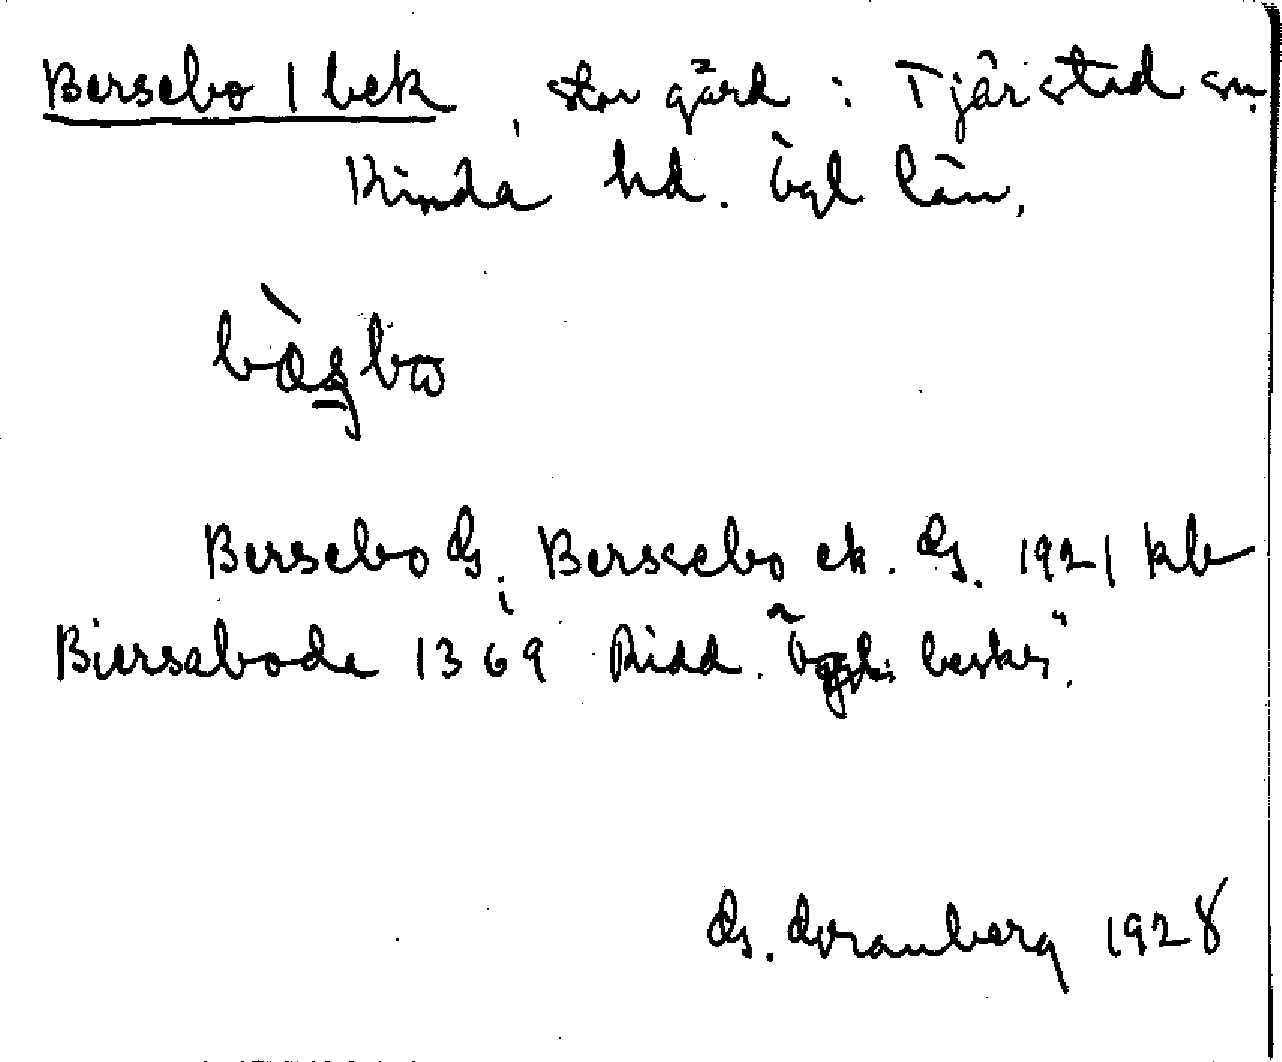 Bersebo 1 bek, stor gård i Tjärstad sn
Kinda hd. Ögl län.
Bersebo Gs; Berssebo ek. Gs. 1921 kb
Biersabode 1369 Ridd. "Ögl. beskr".
Gs. Granberg 1928